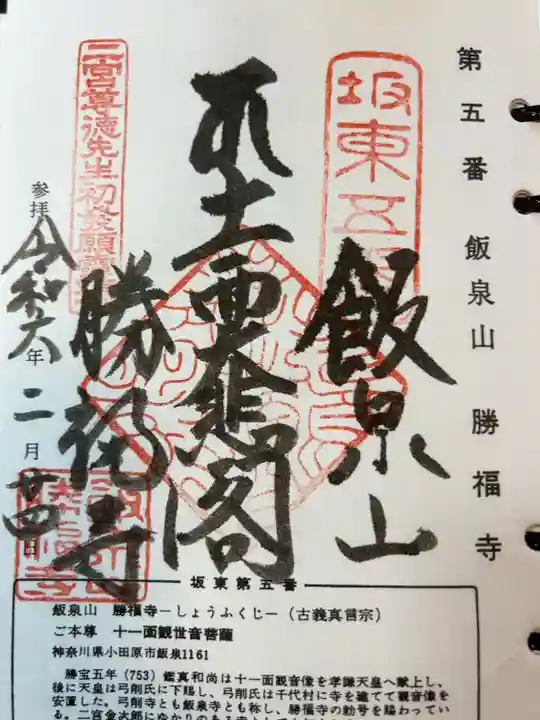 第五番 飯泉山 勝福寺
坂東五
飯泉山
聖
大悲閣
勝福寺
二宮尊徳先生初発願
参拝 令和六年二月廿四日
坂東第五番
飯泉山 勝福寺－しょうふくじ－（古義真言宗）
ご本尊 十一面観世音菩薩
神奈川県小田原市飯泉1161
勝宝五年（753）鑑真和尚は十一面観音像を孝謙天皇へ献上し、
後に天皇は弓削氏に下賜し、弓削氏は千代村に寺を建てて観音像を
安置した。弓削寺とも飯泉寺とも称し、勝福寺の勅号を賜わってい
る。二宮金次郎にゆかりのある寺として